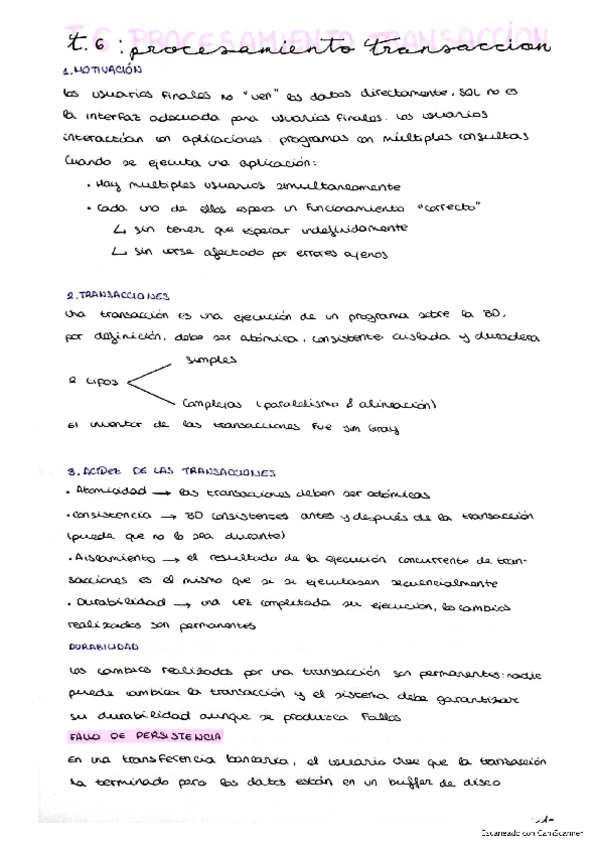 t.6: procesamiento transaccion
1. MOTIVACIÓN
los usuarios finales no "ven" los datos directamente, SQL no es
la interfaz adecuada para usuarios finales. Los usuarios
interactúan con aplicaciones: programas con múltiples consultas
Cuando se ejecuta una aplicación:
• Hay múltiples usuarios simultaneamente
• Cada uno de ellos espera un funcionamiento "correcto"
↳ sin tener que esperar indefinidamente
↳ sin verse afectado por errores ajenos
2. TRANSACCIONES
una transacción es una ejecución de un programa sobre la BD,
por definición, debe ser atómica, consistente aislada y duradera
simples
2 tipos
Complejas (paralelismo & alineación)
El inventor de las transacciones fue Jim Gray
3. ACIDez DE LAS TRANSACCIONES
• Atomicidad → las transacciones deben ser atómicas
• consistencia → BD consistentes antes y después de la transacción
(puede que no lo sea durante)
• Aislamiento → el resultado de la ejecución concurrente de tran-
sacciones es el mismo que si se ejecutasen secuencialmente
• Durabilidad → una vez completada su ejecución, los cambios
realizados son permanentes
DURABILIDAD
Los cambios realizados por una transacción son permanentes: nadie
puede cambiar la transacción y el sistema debe garantizar
su durabilidad aunque se produzca fallos
FALLO DE PERSISTENCIA
En una transferencia bancaria, el usuario cree que la transacción
ha terminado pero los datos están en un buffer de disco
Escaneado con CamScanner